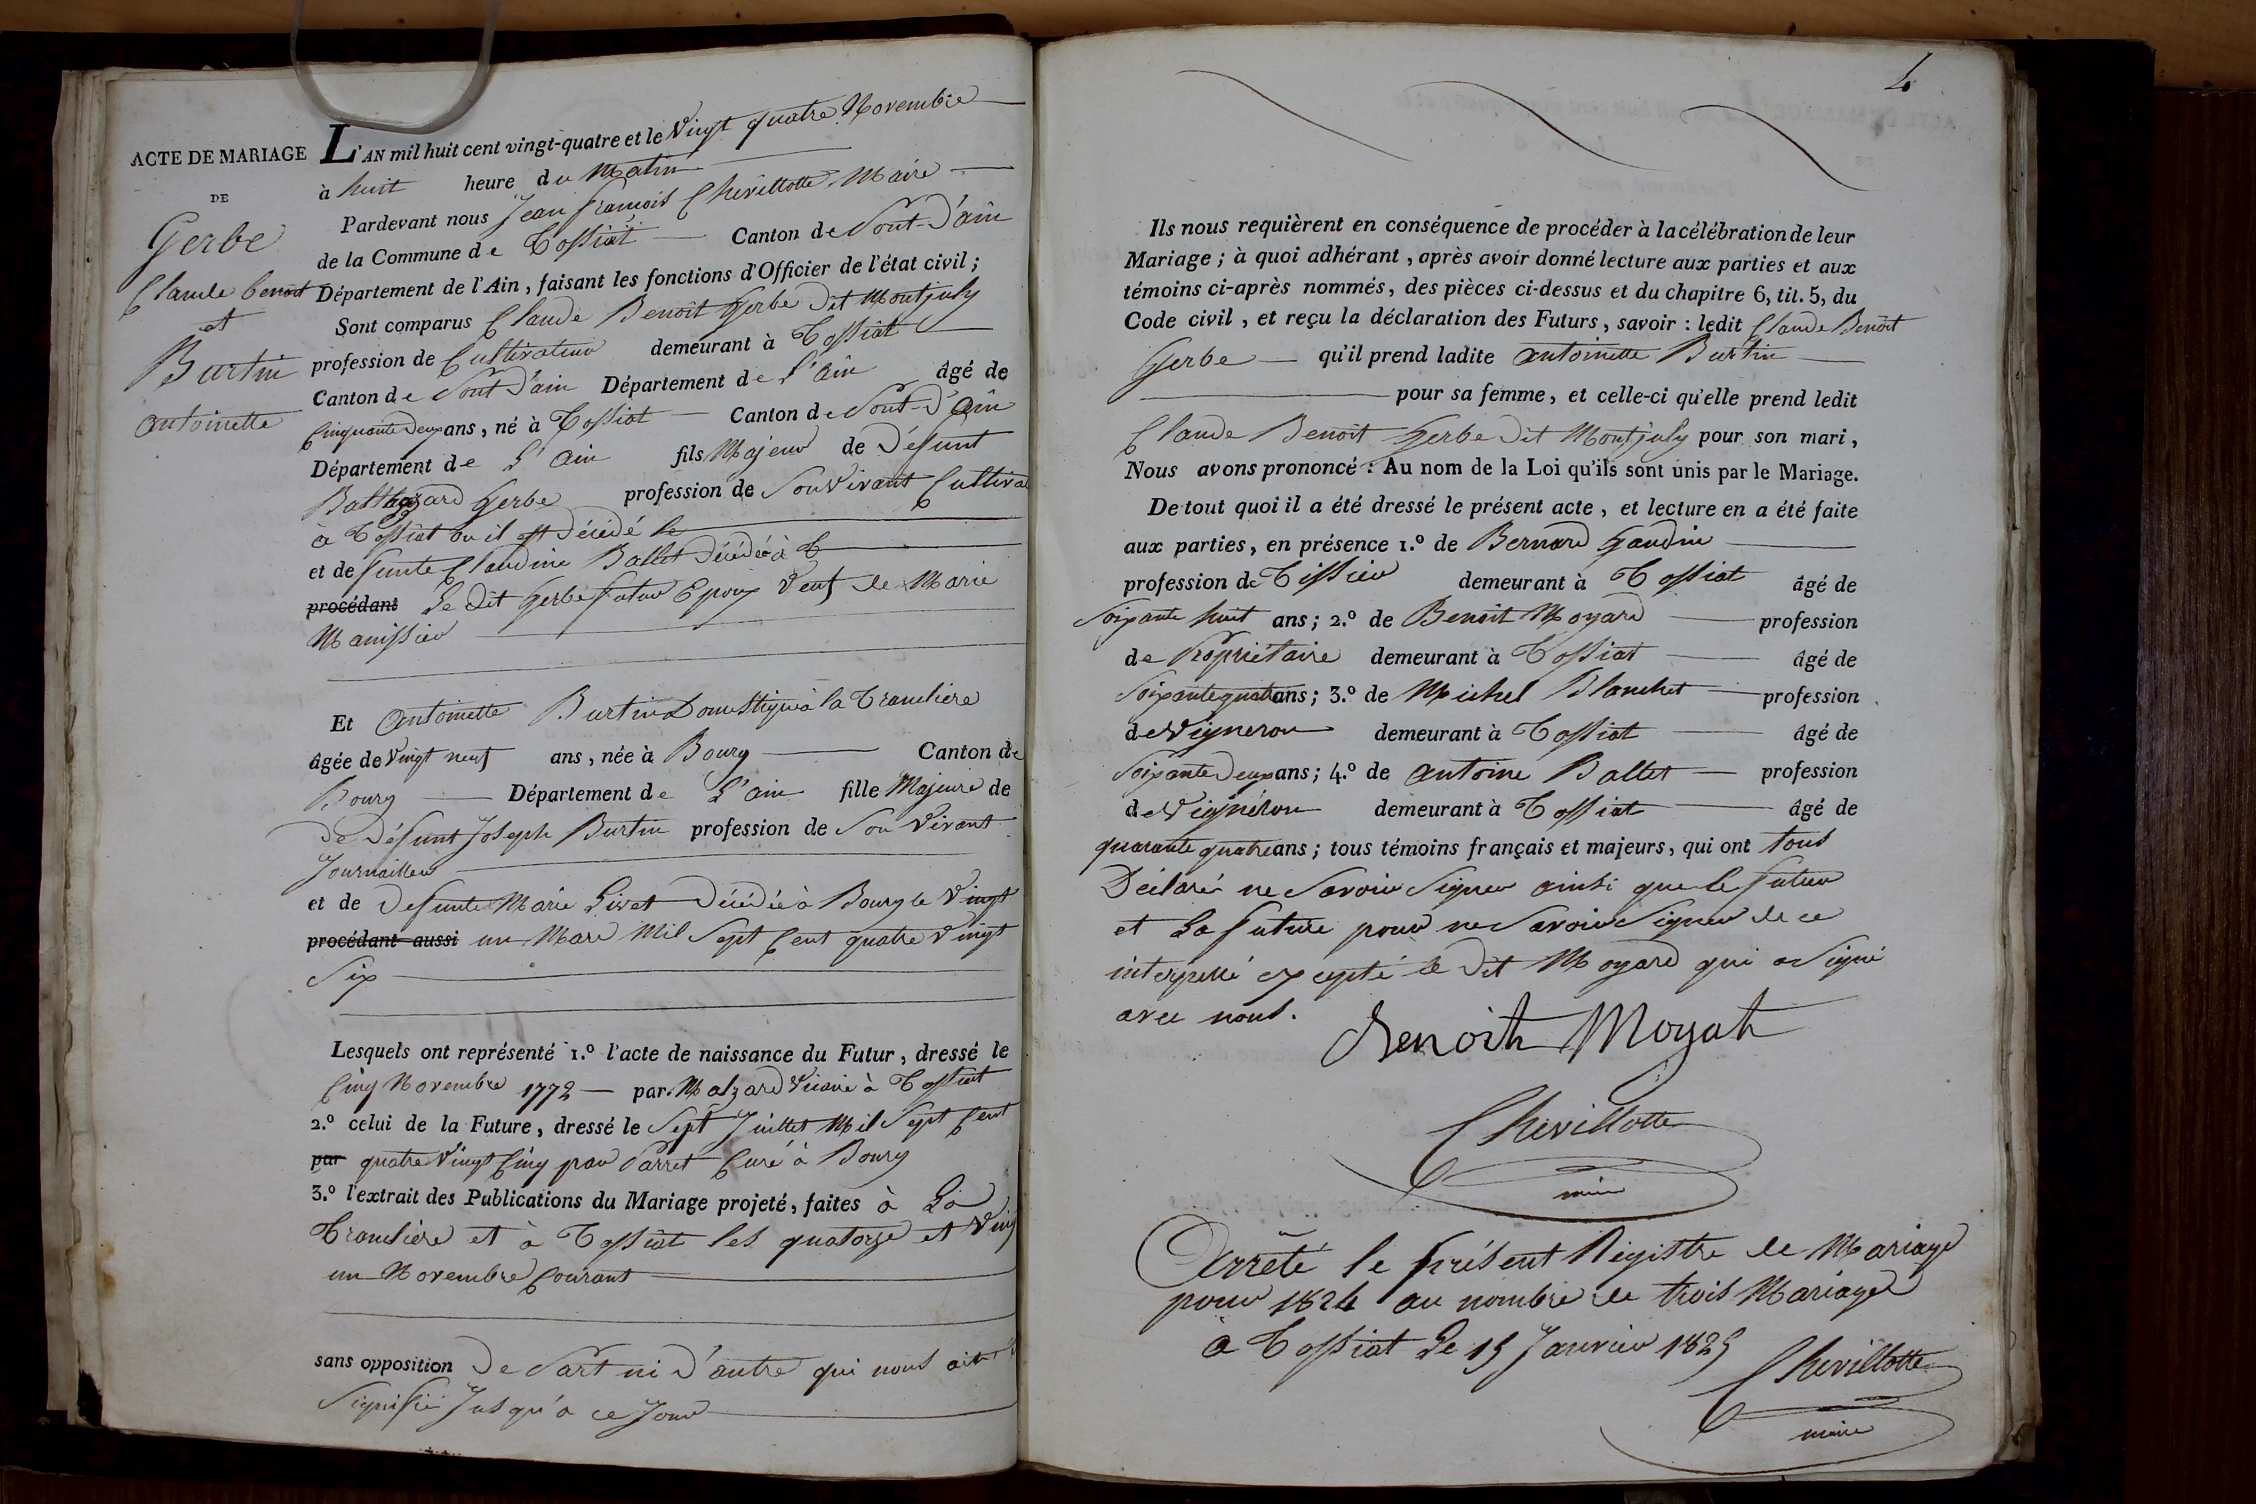 ACTE DE MARIAGE
DE
Gerbe
Claude benoit
et
Burtin
antoinette
L'AN mil huit cent vingt-quatre et le Vingt quatre Novembre
à huit heure du Matin
Pardevant nous Jean francois Chevillotte Maire
de la Commune de Tossiat Canton de Pont-D'ain
Département de l'Ain, faisant les fonctions d'Officier de l'état civil ;
Sont comparus Claude Benoit Gerbe dit Montjuly
profession de Cultivateur demeurant à Tossiat
Canton de Pont D'ain Département de L'ain âgé de
Cinquante Deux ans, né à Tossiat Canton de Pont-D'ain
Département de L'ain fils Majeur de Défunt
Balthazard Gerbe profession de Son Vivant Cultiva
à Tossiat ou il est Décédé le
et de funte Claudine Ballet Décédée à T
procédant Le dit Gerbe futur Epoux Veuf de Marie
Manissieu
Et antoinette Burtin Domestique à la Trancliere
âgée de Vingt neuf ans, née à Bourg Canton de
Bourg Département de L'ain fille Majeure de
de Défunt Joseph Burtin profession de Son Vivant
Journailler
et de Defunte Marie Livet Décédée à Bourg le Vingt
procédant aussi un Mars Mil Sept Cent quatre Vingt
Six
Lesquels ont représenté 1.º l'acte de naissance du Futur, dressé le
Cinq Novembre 1772 par Malzard Vicaire à Tossiat
2.º celui de la Future, dressé le Sept Juillet Mil Sept Cent
par quatre Vingt Cinq par Parret Curé à Bourg
3.º l'extrait des Publications du Mariage projeté, faites à La
Tranclière et à Tossiat les quatorze et Ving
un Novembre Courant
sans opposition De Part ni D'autre qui nous ait
Signifié Jusqu'a ce Jour
4
Ils nous requièrent en conséquence de procéder à la célébration de leur
Mariage ; à quoi adhérant, après avoir donné lecture aux parties et aux
témoins ci-après nommés, des pièces ci-dessus et du chapitre 6, tit. 5, du
Code civil, et reçu la déclaration des Futurs, savoir : ledit Claude Benoit
Gerbe qu'il prend ladite antoinette Burtin
pour sa femme, et celle-ci qu'elle prend ledit
Claude Benoit Gerbe dit Montjuly pour son mari,
Nous avons prononcé : Au nom de la Loi qu'ils sont unis par le Mariage.
De tout quoi il a été dressé le présent acte, et lecture en a été faite
aux parties, en présence 1.º de Bernard Gaudin
profession de Tissieu demeurant à Tossiat âgé de
Soixante huit ans ; 2.º de Benoit Moyard profession
de Propriétaire demeurant à Tossiat âgé de
Soixante quatre ans ; 3.º de Michel Blanchet profession
de Vigneron demeurant à Tossiat âgé de
Soixante Deux ans ; 4.º de antoine Ballet profession
de Vigneron demeurant à Tossiat âgé de
quarante quatre ans ; tous témoins français et majeurs, qui ont tous
Déclaré ne Savoir Signer ainsi que le futur
et La future pour ne Savoir Signer de ce
interpellé excepté le dit Moyard qui a Signé
avec nous.
Benoit Moyat
Chevillotte
maire
Arrêté le présent Registre de Mariage
pour 1824 au nombre de trois Mariages
à Tossiat Le 15 Janvier 1825
Chevillotte
maire